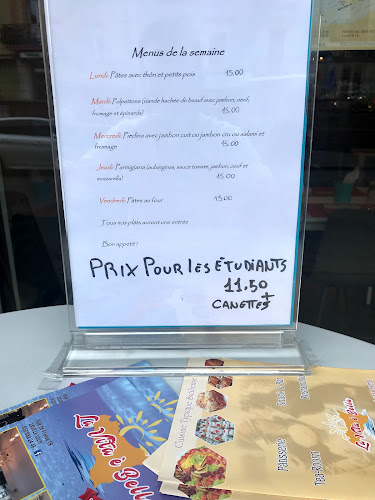 Menus de la semaine
Lundi Pâtes avec thon et petits pois 15.00
Mardi Polpettone (viande hachée de bœuf avec jambon, œuf,
fromage et épinards) 15.00
Mercredi Piadina avec jambon cuit ou jambon cru ou salami et
fromage 15.00
Jeudi Parmigiana (aubergines, sauce tomate, jambon, œuf et
mozzarella) 15.00
Vendredi Pâtes au four 15.00
Tous nos plats auront une entrée
Bon appetit !
PRIX POUR LES ÉTUDIANTS
11.50
+
CANETTES
La Vita è Bella
Cuisine Typique
Pâtisserie
Tea-Room
La Vita è Bella